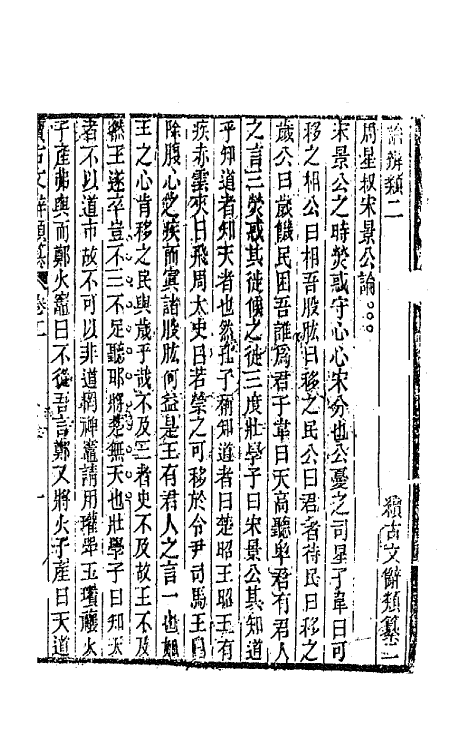 論辨類二　續古文辭類纂二
周星叔宋景公論
宋景公之時熒或守心心宋分也公憂之司星子韋曰可
移之相公曰相吾股肱曰移之民公曰君者待民曰移之
歲公曰歲饑民困吾誰爲君子韋曰天高聽卑君有君人
之言三熒或其徙候之徙三度壯學子曰宋景公其知道
乎知道者知天者也然孔子稱知道者曰楚昭王昭王有
疾赤雲夾日飛周太史曰若禜之可移於令尹司馬王曰
除腹心之疾而寘諸股肱何益是王有君人之言一也如
王之心肯移之民與歲乎哉不及三者史不及故王不及
然王遂卒豈不三不足聽耶將楚無天也壯學子曰知天
者不以道市故不可以非道罔神竈請用瓘斝玉瓚禳火
子產弗與而鄭火竈曰不從吾言鄭又將火子產曰天道
續古文辭類纂　卷二　一